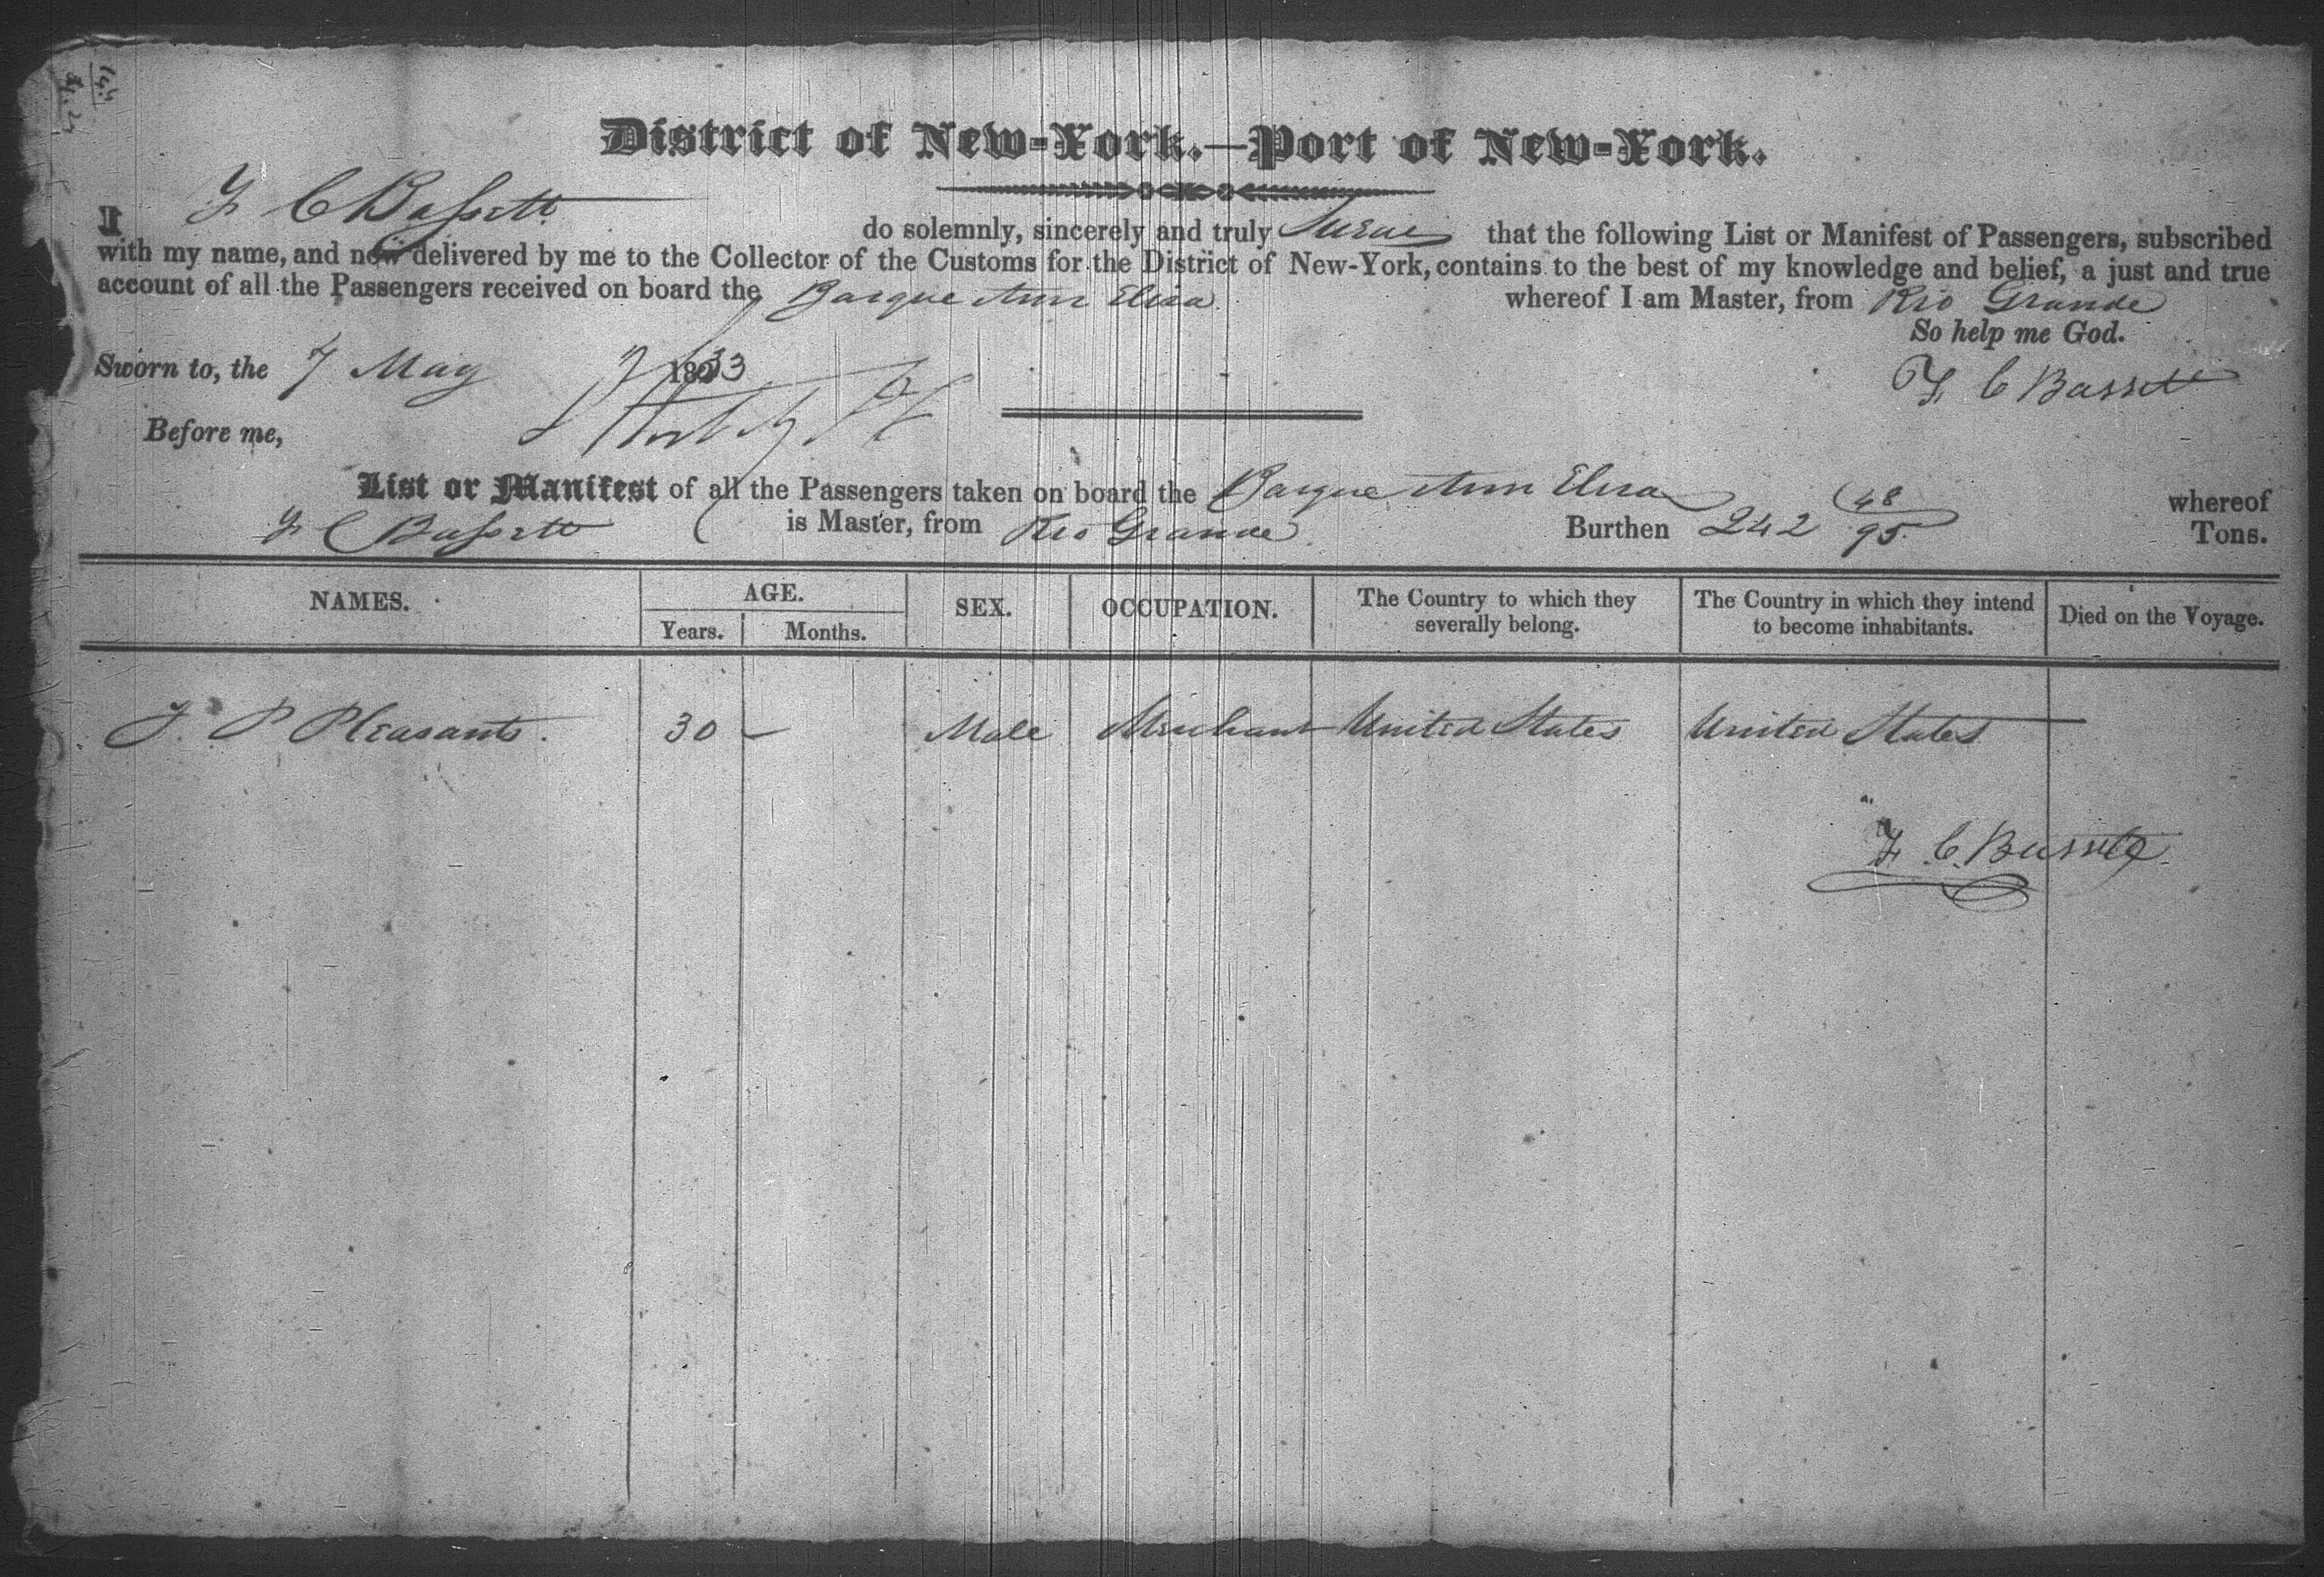 District of New-York.—Port of New-York.
I F C Bassett do solemnly, sincerely and truly Swear that the following List or Manifest of Passengers, subscribed
with my name, and now delivered by me to the Collector of the Customs for the District of New-York, contains to the best of my knowledge and belief, a just and true
account of all the Passengers received on board the Barque Ann Eliza whereof I am Master, from Rio Grande
So help me God.
Sworn to, the 7 May 1833
F C Bassett
Before me,
List or Manifest of all the Passengers taken on board the Barque Ann Eliza whereof
F C Bassett is Master, from Rio Grande Burthen 242 48/95 Tons.
NAMES. AGE. SEX. OCCUPATION. The Country to which they severally belong. The Country in which they intend to become inhabitants. Died on the Voyage.
Years. Months.
J. P Pleasants. 30 — Male Merchant United States United States
F. C. Bassett